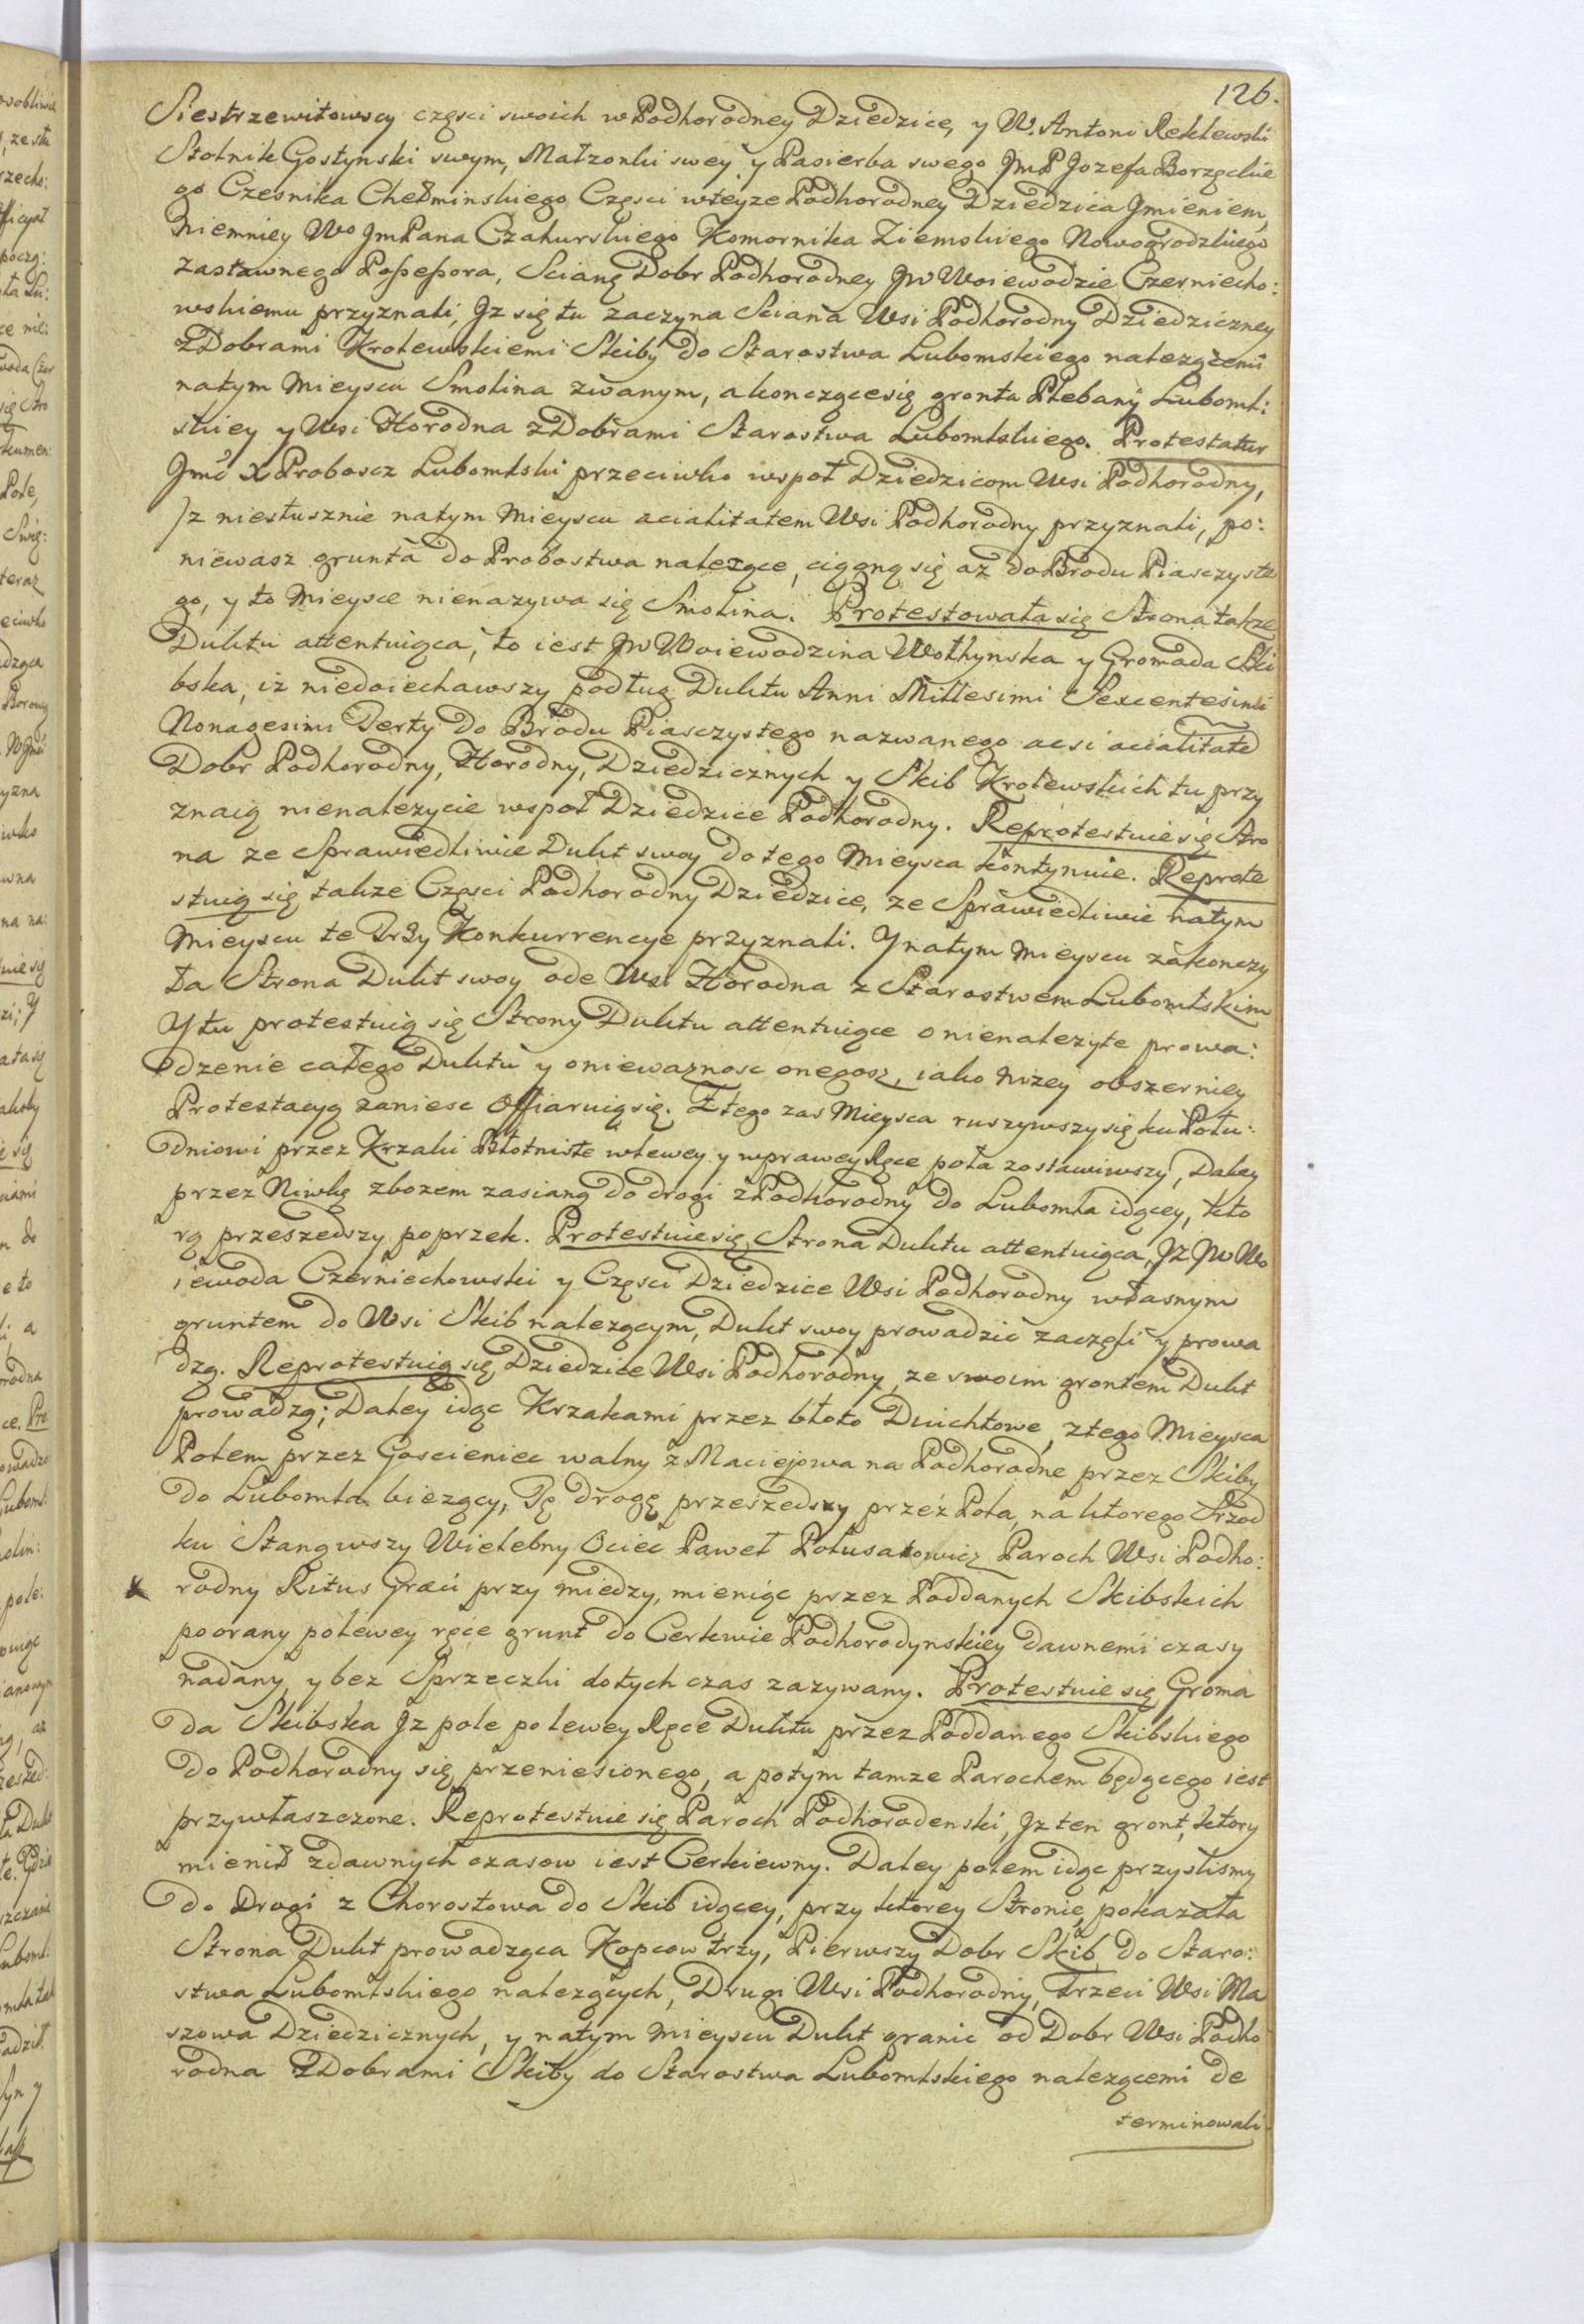 126.
Siestrzewitowscy częsci swoich w Podhorodney Dziedzice, y W. Antoni Reklewski
Stolnik Gostynski swym, Małzonki swey y Pasierba swego JmP Jozefa Borzęckie
go Czesnika Chełminskiego Częsci wteyze Podhorodney Dziedzica Jmieniem,
Niemniey Wo JmPana Czahurskiego Komornika Ziemskiego Nowogrodzkiego
zastawnego Possessora, Scianę Dobr Podhorodney JW Woiewodzie Czerniecho:
wskiemu przyznali, Jz się tu zaczyna Sciana Wsi Podhorodny Dziedziczney
z Dobrami Krolewskiemi Skiby do Starostwa Lubomskiego nalezącemi
natym Mieyscu Smolina zwanym, akonczącesię gronta Plebany Luboml:
skiey y Wsi Horodna z Dobrami Starostwa Lubomlskiego. Protestatur
Jmć X Proboscz Lubomlski przeciwko wspoł Dziedzicom Wsi Podhorodny,
Jz niesłusznie natym Mieyscu acialitatem Wsi Podhorodny przyznali, po:
niewasz grunta do Probostwa nalezące, ciągną się az do Brodu Piasczyste
go, y to Mieysce nienazywa się Smolina. Protestowała się Strona takze
Duktu attentuiąca, to iest JW Woiewodzina Wołhynska y Gromada Ski
bska, iz niedoiechawszy podług Duktu Anni Millesimi Sexcentesimi
Nonagesimi Terty do Brodu Piasczystego nazwanego acsi acialitate
Dobr Podhorodny, Horodny, Dziedzicznych y Skib Krolewskich tu przy
znaią nienalezycie wspoł Dziedzice Podhorodny. Reprotestuie się Stro
na ze Sprawiedliwie Dukt swoy do tego Mieysca kontynuie. Reprote
stuią się takze Częsci Podhorodny Dziedzice, ze Sprawiedliwie natym
Mieyscu te Trzy Konkurrencye przyznali. Y natym Mieyscu zakonczy
ła Strona Dukt swoy ode Wsi Horodna z Starostwem Lubomlskim
Y tu protestuią się Strony Duktu attentuiące o nienalezyte prowa:
dzenie całego Duktu y oniewaznosc onegosz, iako nizey obszerniey
Protestacyą zaniesc offiaruią się. Ztego zas Mieysca ruszywszy się ku Połu:
dniowi przez Krzaki Błotniste wlewey y wprawey Ręce pola zostawiwszy, Daley
przez Niwkę zbozem zasianą do drogi z Podhorodny do Lubomla idącey, kto
rą przeszedszy poprzek. Protestuie się Strona Duktu attentuiąca, Jz JW Wo
iewoda Czerniechowski y Częsci Dziedzice Wsi Podhorodny własnym
gruntem do Wsi Skib nalezącym, Dukt swoy prowadzic zaczęli y prowa
dzą. Reprotestuią się Dziedzice Wsi Podhorodny, ze swoim grontem Dukt
prowadzą; Daley idąc Krzakami przez błoto Duichtowe, ztego Mieysca
Polem przez Goscieniec walny z Maciejowa na Podhorodne przez Skiby
do Lubomla biezący, Tę drogę przeszedszy przez Pola, na ktorego Srzod
ku Stanąwszy Wielebny Ociec Paweł Połusatowicz Paroch Wsi Podho:
rodny Ritus Græci przy miedzy, mieniąc przez Poddanych Skibskich
poorany polewey ręce grunt do Cerkwie Podhorodynskiey dawnemi czasy
nadany, y bez Sprzeczki dotych czas zazywany. Protestuie się Groma
da Skibska Jz pole polewey Ręce Duktu przez Poddanego Skibskiego
do Podhorodny się przeniesionego, a potym tamze Parochem będącego iest
przywłaszczone. Reprotestuie się Paroch Podhorodenski, Jz ten gront, ktory
mienił zdawnych czasow iest Cerkiewny. Daley polem idąc przyslismy
do Drogi z Chorostowa do Skib idącey, przy ktorey Stronie, pokazała
Strona Dukt prowadząca Kopcow trzy, Pierwszy Dobr Skib, do Staro:
stwa Lubomlskiego nalezących, Drugi Wsi Podhorodny, Trzeci Wsi Ma
szowa Dziedzicznych, y natym Mieyscu Dukt granic od Dobr Wsi Podho
rodna z Dobrami Skiby do Starostwa Lubomlskiego nalezącemi de
terminowali